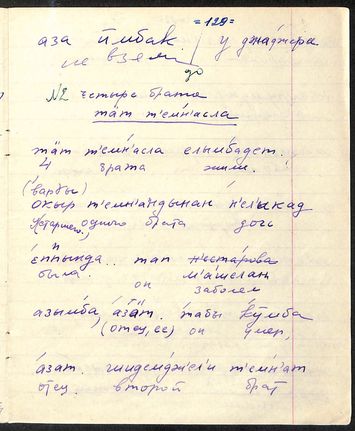 = 128 =
аза ӣмбак / у джаджора
не взял /
до
№2 четыре брата
тӓт т'емн'асла
тӓт т'емн'асла елымбадет.
4 брата жили.
(варӷы)
окыр т'емн'андынан н'елькад
(старшего), одного брата дочь
еппында.. тап
была. он заболел
азымба, азӓт. табы кумба
(отец, ее) он умер,
азат. т'емн'ат
отец. второй брат